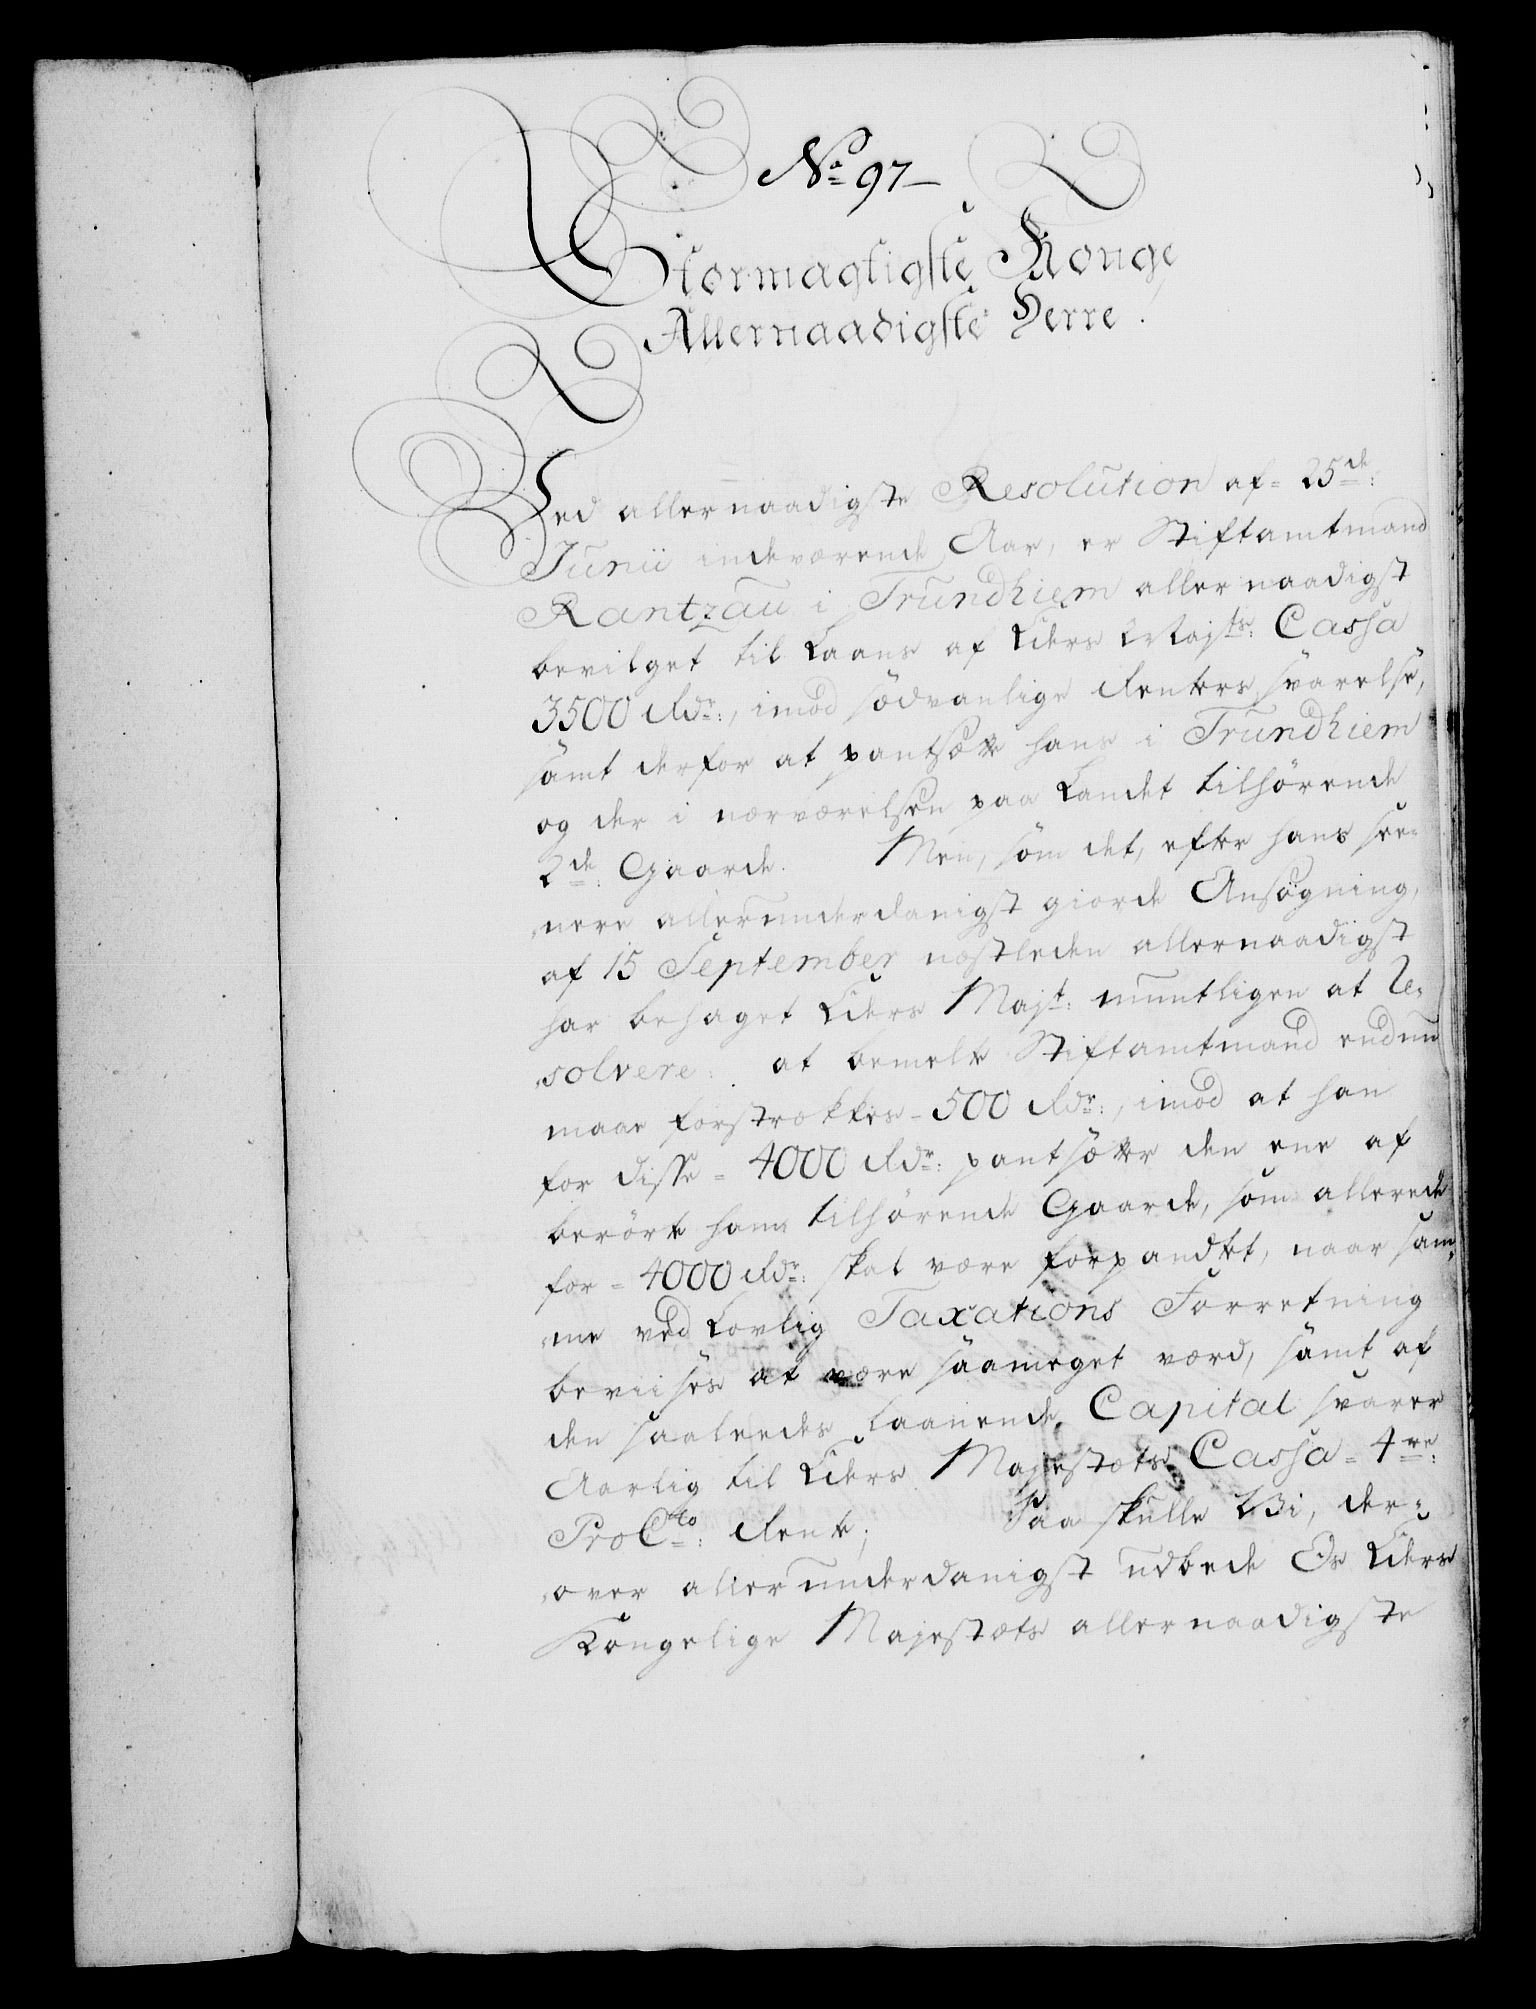 No 97
Stormagtigste Konge
Allernaadigste Herre.
Ved allernaadigste Resolution af 25de:
Junii indeværende Aar, er Stiftamtmand
Rantzau i Trundhiem allernaadigst
bevilget til Laans af Eders Majts: Cassa
3500 Rdr:, imod sædvanlige Renters svarelse,
samt derfor at pantsætte hans i Trundhiem
og der i nærværelsen paa Landet tilhørende
2de: Gaarde. Men, som det, efter hans see-
nere allerunderdanigst giorde Ansøgning,
af 15 September næstleden allernaadigst
har behaget Eders Majt: mundtligen at Re-
solvere: at bemelte Stiftamtmand endnu
maae forstrækkes 500 Rdr:, imod at han
for disse 4000 Rdr: pantsætter den ene af
berørte ham tilhørende Gaarde, som allerede
for 4000 Rdr: skal være forpandtet, naar sam-
me ved Lovlig Taxations Forretning
beviises at være saameget værd, samt af
den saaleedes laanende Capital svarer
Aarlig til Eders Majestæts Cassa 4re:
ProCto: Rente; Saa skulle Vi, der-
over allerunderdanigst udbede Os Eders
Kongelige Majestæts allernaadigste